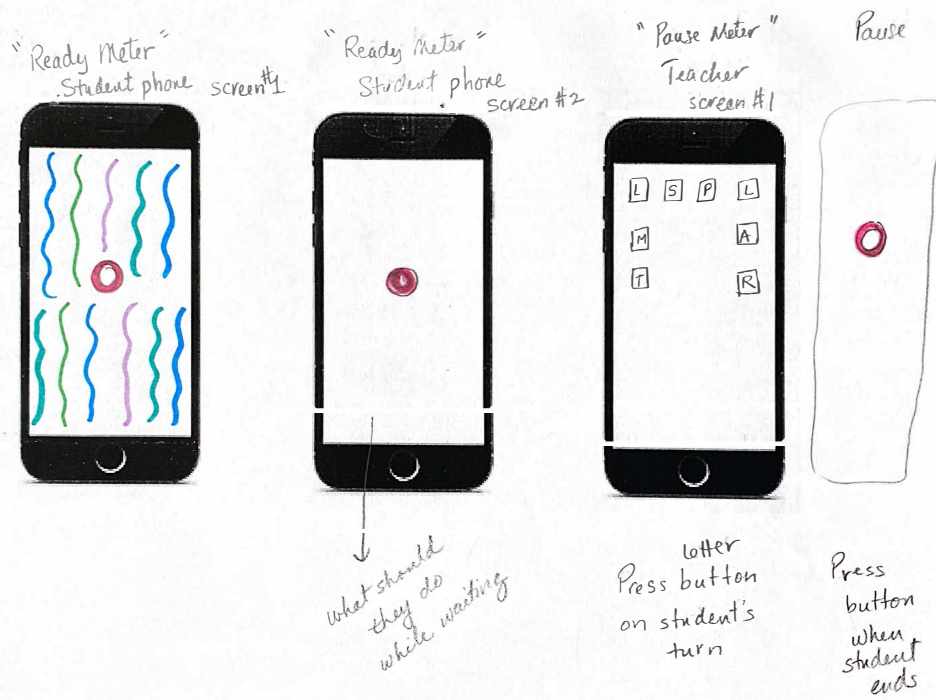 "Ready Meter"
Student phone screen #1
"Ready Meter"
Student phone
screen #2
"Pause Meter"
Teacher
screen #1
Pause
L S P L
M A
T R
what should
they do
while waiting
letter
Press button
on student's
turn
Press
button
when
student
ends